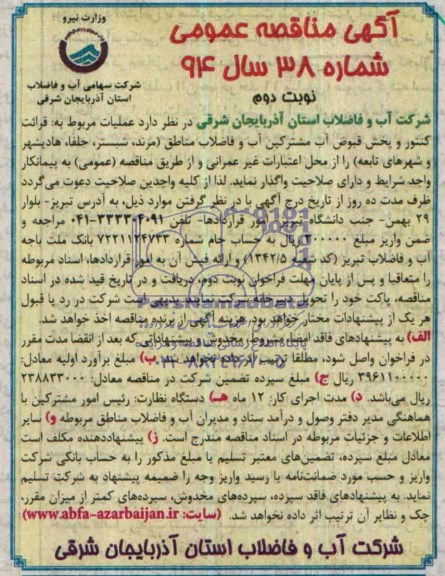 وزارت نیرو
شرکت سهامی آب و فاضلاب
استان آذربایجان شرقی
آگهی مناقصه عمومی
شماره ۳۸ سال ۹۴
نوبت دوم
شرکت آب و فاضلاب استان آذربایجان شرقی در نظر دارد عملیات مربوط به: قرائت
کنتور و پخش قبوض آب مشترکین آب و فاضلاب مناطق (مرند، شبستر، جلفا، هادیشهر
و شهرهای تابعه) را از محل اعتبارات غیر عمرانی و از طریق مناقصه (عمومی) به پیمانکار
واجد شرایط و دارای صلاحیت واگذار نماید. لذا از کلیه واجدین صلاحیت دعوت می‌گردد
ظرف مدت ده روز از تاریخ درج آگهی با در نظر گرفتن موارد ذیل، به آدرس تبریز- بلوار
۲۹ بهمن- جنب دانشگاه تبریز- امور قراردادها- تلفن ۳۳۳۰۴۰۹۱-۰۴۱ مراجعه و
ضمن واریز مبلغ ریال به حساب جام شماره ۷۲۲۱۱۲۴۷۳۳ بانک ملت باجه
آب و فاضلاب تبریز (کد شعبه ۱۳۴۲/۵) و ارائه فیش آن به امور قراردادها، اسناد مربوطه
را متعاقبا و پس از پایان مهلت فراخوان نوبت دوم، دریافت و در تاریخ قید شده در اسناد
مناقصه، پاکت خود را تحویل دبیرخانه شرکت نمایند. بدیهی است شرکت در رد یا قبول
هر یک از پیشنهادات مختار خواهد بود. هزینه آگهی از برنده مناقصه اخذ خواهد شد.
الف) به پیشنهادهای فاقد امضا، مشروط، مخدوش و پیشنهاداتی که بعد از انقضا مدت مقرر
در فراخوان واصل شود، مطلقا ترتیب اثر داده نخواهد شد. ب) مبلغ برآورد اولیه معادل:
۳۹۶۱۱۰۰۰۰۰ ریال ج) مبلغ سپرده تضمین شرکت در مناقصه معادل: ۲۳۸۸۳۳۰۰۰
ریال می‌باشد. د) مدت اجرای کار: ۱۲ ماه هـ) دستگاه نظارت: رئیس امور مشترکین با
هماهنگی مدیر دفتر وصول و درآمد ستاد و مدیران آب و فاضلاب مناطق مربوطه و) سایر
اطلاعات و جزئیات مربوطه در اسناد مناقصه مندرج است. ز) پیشنهاددهنده مکلف است
معادل مبلغ سپرده، تضمین‌های معتبر تسلیم یا مبلغ مذکور را به حساب بانکی شرکت
واریز و حسب مورد ضمانت‌نامه یا رسید واریز وجه را ضمیمه پیشنهاد به شرکت تسلیم
نماید. به پیشنهادهای فاقد سپرده، سپرده‌های مخدوش، سپرده‌های کمتر از میزان مقرر،
چک و نظایر آن ترتیب اثر داده نخواهد شد. (سایت: www.abfa-azarbaijan.ir)
شرکت آب و فاضلاب استان آذربایجان شرقی